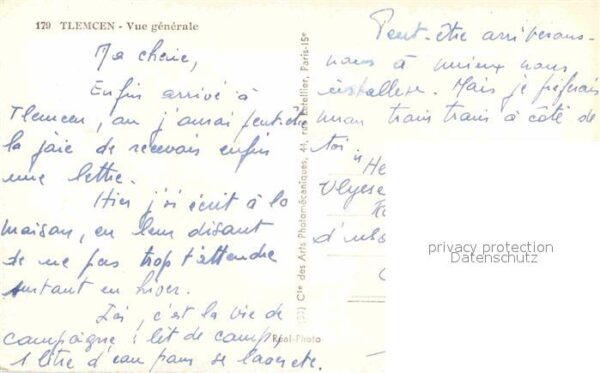 179 TLEMCEN - Vue générale
Ma chérie,
Enfin arrivé à
Tlemcen, où j'aurai peut-être
la joie de recevoir enfin
une lettre.
Hier j'ai écrit à la
maison, en leur disant
de ne pas trop t'attendre
surtout en hiver.
Ici, c'est la vie de
campagne : lit de camp,
1 litre d'eau pour se laver etc.
Cie des Arts Photomécaniques, 44, rue Letellier, Paris-15e
Réel-Photo
Peut-être arriverons-
nous à mieux nous
installer. Mais je préférais
mon train train à côté de
toi
Ulysse
privacy protection
Datenschutz